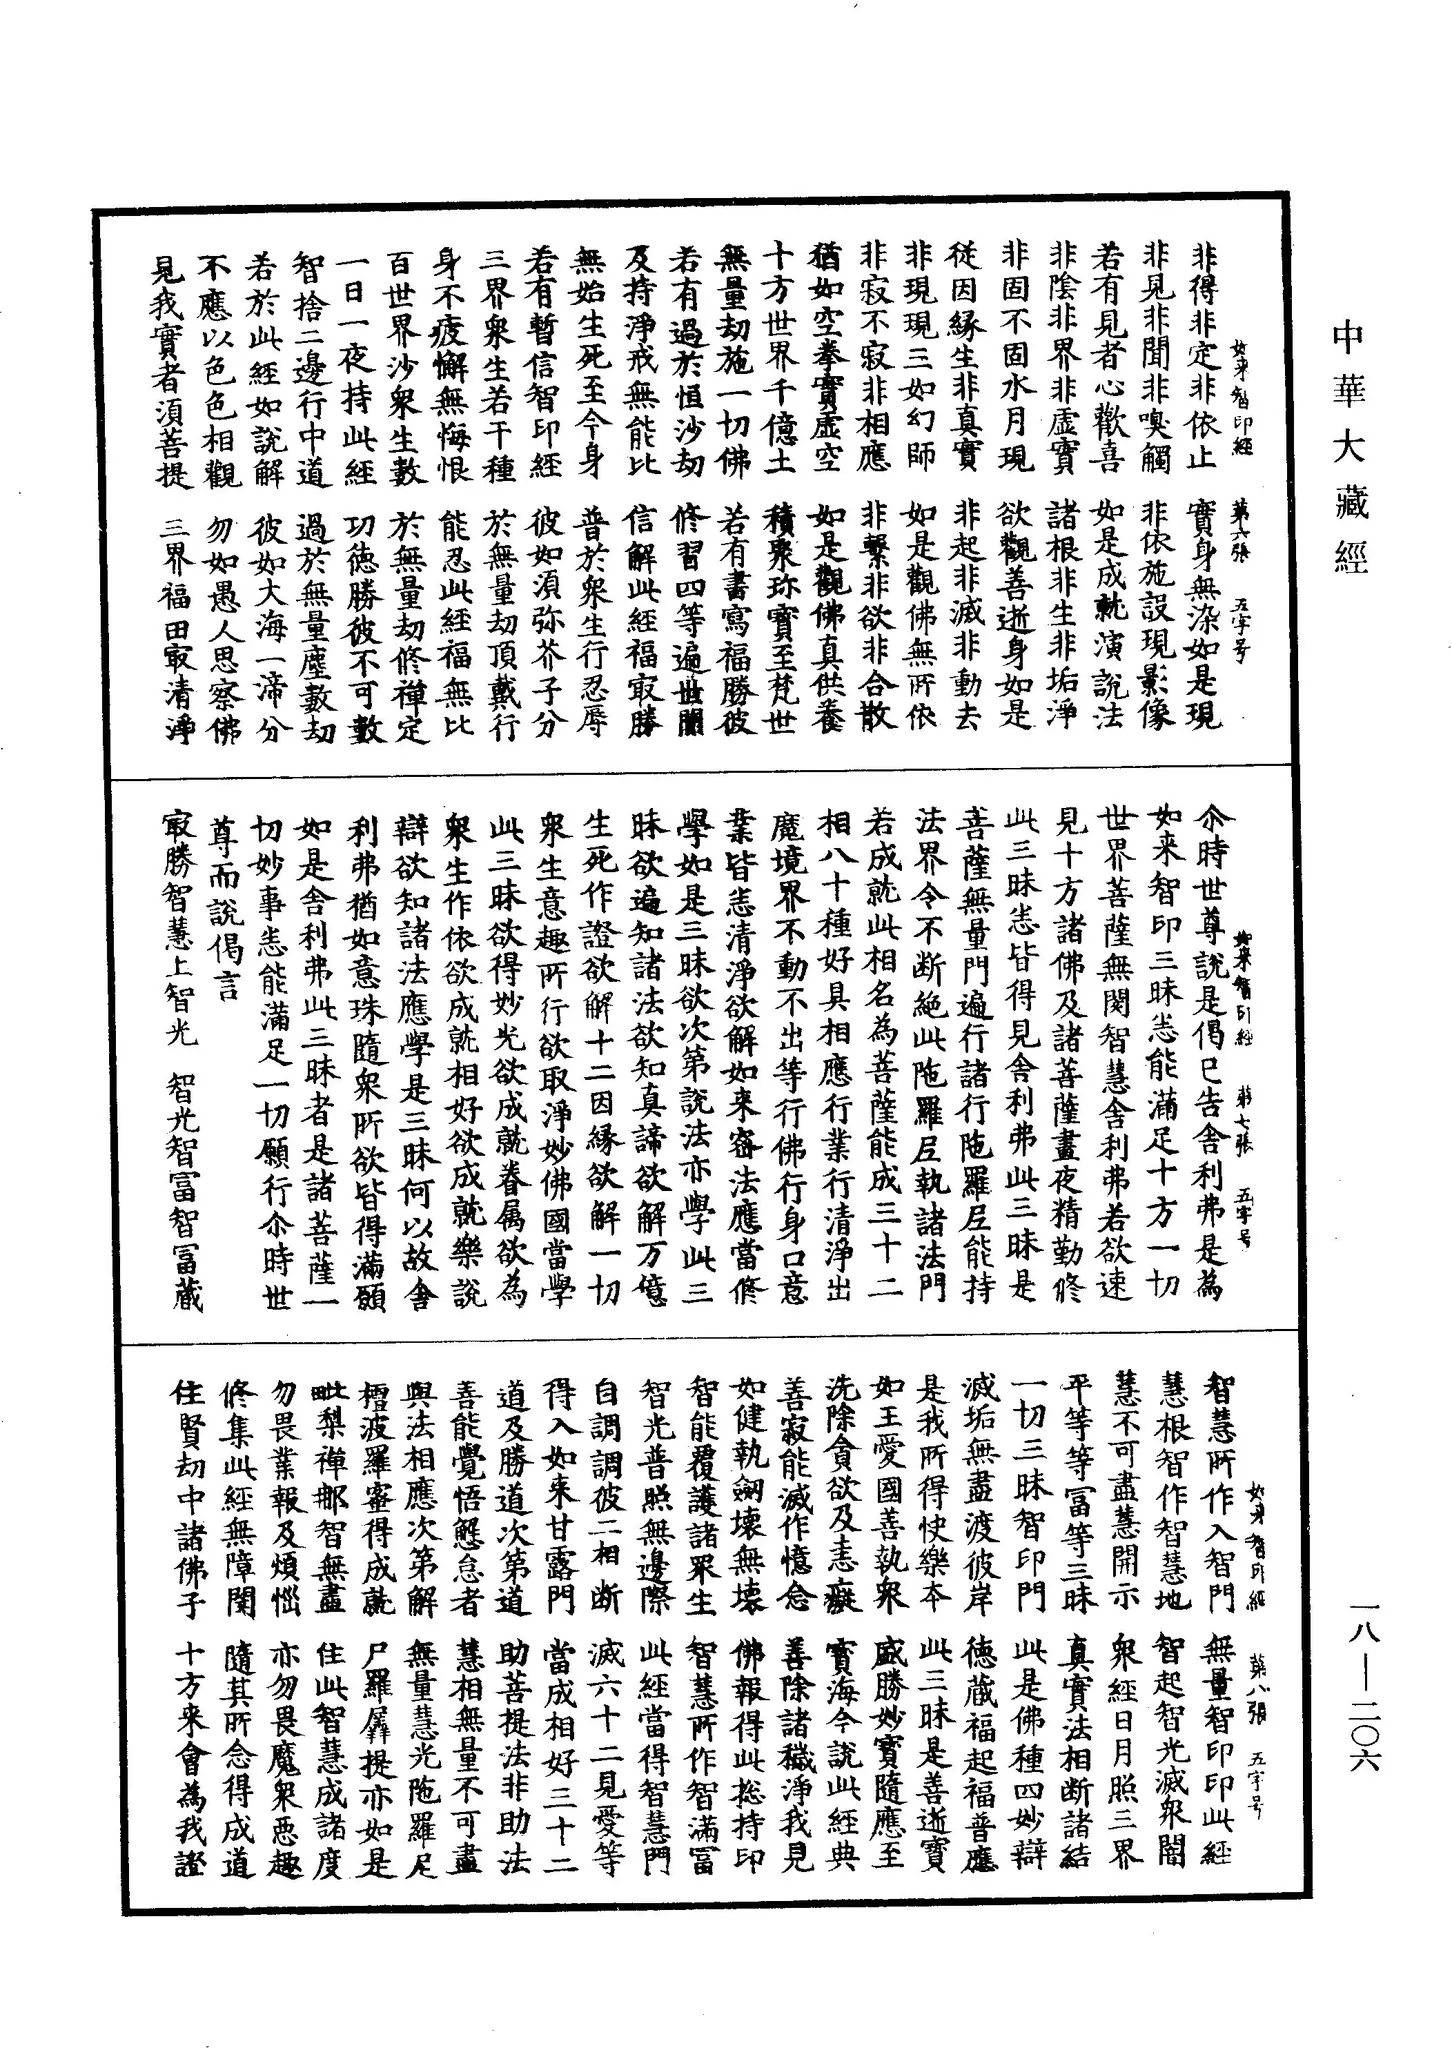 中華大藏經
如来智印經 第六張 五字号
非得非定非依止 實身無染如是現
非見非聞非嗅觸 非依施設現影像
若有見者心歡喜 如是成就演說法
非陰非界非虛實 諸根非生非垢淨
非固不固水月現 欲觀善逝身如是
從因緣生非真實 非起非滅非動去
非現現三如幻師 如是觀佛無所依
非寂不寂非相應 非繫非欲非合散
猶如空拳實虛空 如是觀佛真供養
十方世界千億土 積聚珎寶至梵世
無量劫施一切佛 若有書寫福勝彼
若有過於恒沙劫 修習四等遍世間
及持淨戒無能比 信解此經福㝡勝
無始生死至今身 普於衆生行忍辱
若有暫信智印經 彼如須弥芥子分
三界衆生若干種 於無量劫頂戴行
身不疲懈無悔恨 能忍此經福無比
百世界沙衆生數 於無量劫修禪定
一日一夜持此經 功德勝彼不可數
智捨二邊行中道 過於無量塵數劫
若於此經如說解 彼如大海一渧分
不應以色色相觀 勿如愚人思察佛
見我實者須菩提 三界福田㝡清淨
如来智印經 第七張 五字号
尒時世尊說是偈已告舍利弗是為
如来智印三昧悉能滿足十方一切
世界菩薩無閡智慧舍利弗若欲速
見十方諸佛及諸菩薩晝夜精勤修
此三昧悉皆得見舍利弗此三昧是
菩薩無量門遍行諸行陁羅尼能持
法界令不断絶此陁羅尼執諸法門
若成就此相名為菩薩能成三十二
相八十種好具相應行業行清淨出
魔境界不動不出等行佛行身口意
業皆悉清淨欲解如来密法應當修
學如是三昧欲次第說法亦學此三
昧欲遍知諸法欲知真諦欲解万億
生死作證欲解十二因緣欲解一切
衆生意趣所行欲取淨妙佛國當學
此三昧欲得妙光欲成就眷属欲為
衆生作依欲成就相好欲成就樂說
辯欲知諸法應學是三昧何以故舍
利弗猶如意珠隨衆所欲皆得滿願
如是舍利弗此三昧者是諸菩薩一
切妙事悉能滿足一切願行尒時世
尊而說偈言
㝡勝智慧上智光 智光智冨智冨藏
如来智印經 第八張 五字号
智慧所作入智門 無量智印印此經
慧根智作智慧地 智起智光滅衆闇
慧不可盡慧開示 衆經日月照三界
平等等冨等三昧 真實法相断諸結
一切三昧智印門 此是佛種四妙辯
滅垢無盡渡彼岸 德藏福起福普應
是我所得快樂本 此三昧是善逝寶
如王愛國善執衆 盛勝妙寶隨應至
洗除貪欲及恚癡 寶海今說此經典
善寂能滅作憶念 善除諸穢淨我見
如健執劒壞無壞 佛報得此揔持印
智能覆護諸衆生 智慧所作智滿冨
智光普照無邊際 此經當得智慧門
自調調彼二相断 滅六十二見愛等
得入如来甘露門 當成相好三十二
道及勝道次第道 助菩提法非助法
善能覺悟懈怠者 慧相無量不可盡
與法相應次第解 無量慧光陁羅尼
檀波羅蜜得成就 尸羅羼提亦如是
毗梨禪那智無盡 住此智慧成諸度
勿畏業報及煩惱 亦勿畏魔衆惡趣
修集此經無障閡 隨其所念得成道
住賢劫中諸佛子 十方来會為我證
一八—二〇六